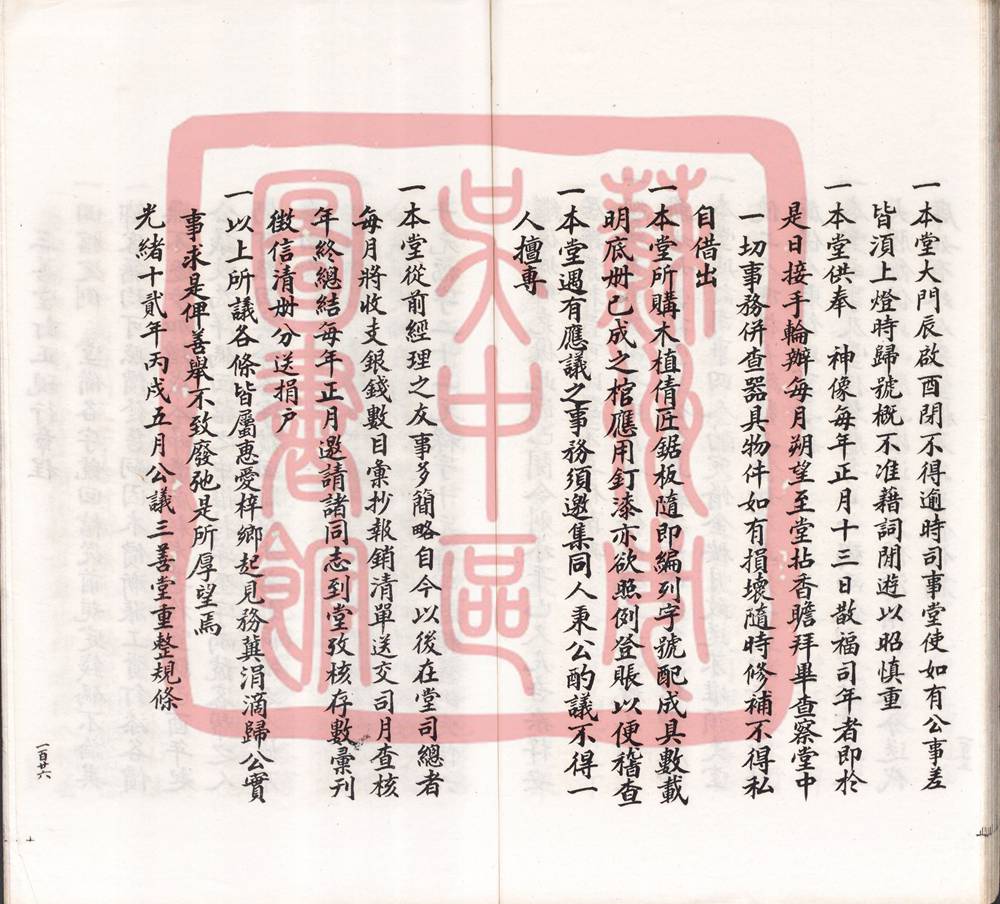 一本堂大門辰啟酉閉不得逾時司事堂使如有公事差
皆湏上燈時歸號概不准藉詞閒遊以昭慎重
一本堂供奉　神像每年正月十三日散福司年者即於
是日接手輪辦每月朔望至堂拈香瞻拜畢查察堂中
一切事務併查器具物件如有損壞隨時修補不得私
自借出
一本堂所購木植倩匠鋸板隨即編列字號配成具數載
明底册已成之棺應用釘漆亦欲照例登賬以便稽查
一本堂遇有應議之事務須邀集同人秉公酌議不得一
人擅專
一本堂從前經理之友事多簡略自今以後在堂司總者
每月將收支銀錢數目彙抄報銷清單送交司月查核
年終總結每年正月邀請諸同志到堂攷核存數彙刋
徵信清册分送捐户
一以上所議各條皆屬惠愛梓鄉起見務冀涓滴歸公實
事求是俾善舉不致廢弛是所厚望焉
光緒十貳年丙戌五月公議三善堂重整規條
一百廿六
蘇州市
吳中區
圖書館